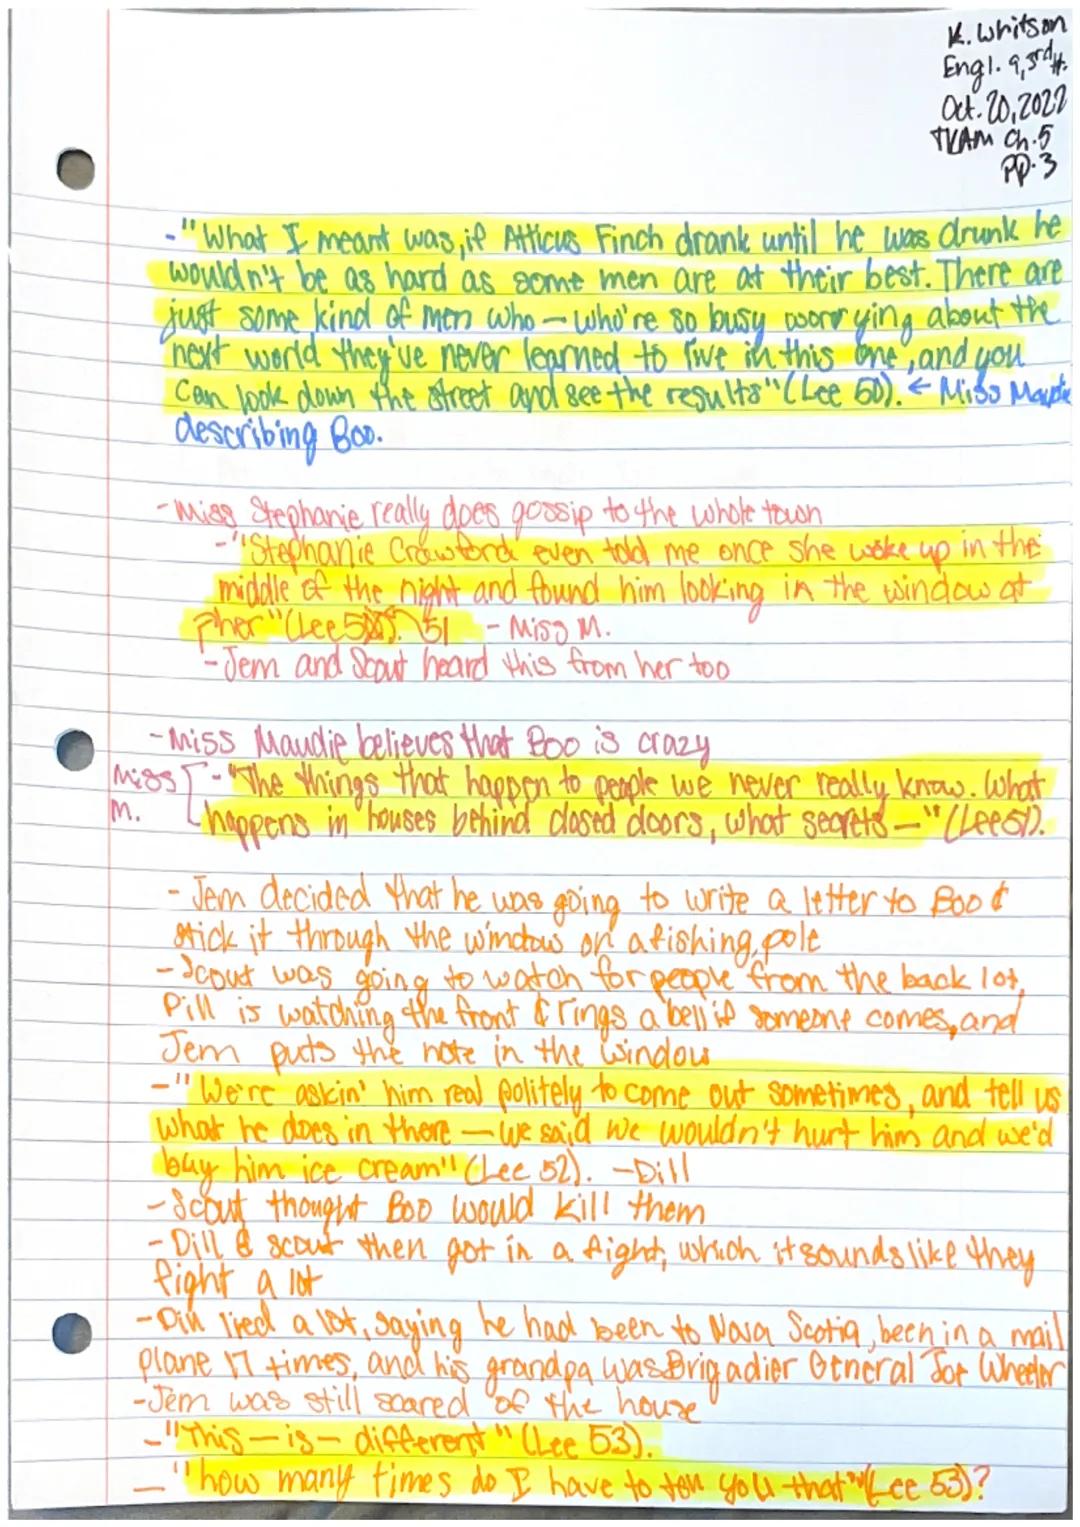 K. Whitson
Engl. 9, 3rd H.
Oct. 20, 2022
TKAM Ch. 5
pp. 3
-"What I meant was, if Atticus Finch drank until he was drunk he
wouldn't be as hard as some men are at their best. There are
just some kind of men who - who're so busy worrying about the
next world they've never learned to live in this one, and you
can look down the street and see the results" (Lee 50). ← Miss Maudie
describing Boo.
- Miss Stephanie really does gossip to the whole town
- "Stephanie Crawford even told me once she woke up in the
middle of the night and found him looking in the window at
her" (Lee 51 - Miss M.
- Jem and Scout heard this from her too
- Miss Maudie believes that Boo is crazy
Miss M. - "The things that happen to people we never really know. What
happens in houses behind closed doors, what secrets -" (Lee 51).
- Jem decided that he was going to write a letter to Boo &
stick it through the window on a fishing pole
- Scout was going to watch for people from the back lot,
Dill is watching the front & rings a bell if someone comes, and
Jem puts the note in the window
- "We're askin' him real politely to come out sometimes, and tell us
what he does in there - we said we wouldn't hurt him and we'd
buy him ice cream" (Lee 52). - Dill
- Scout thought Boo would kill them
- Dill & scout then got in a fight, which it sounds like they
fight a lot
- Dill lied a lot, saying he had been to Nova Scotia, been in a mail
plane 17 times, and his grandpa was Brigadier General Joe Wheeler
- Jem was still scared of the house
- "This - is - different" (Lee 53).
- "how many times do I have to tell you that" (Lee 53)?